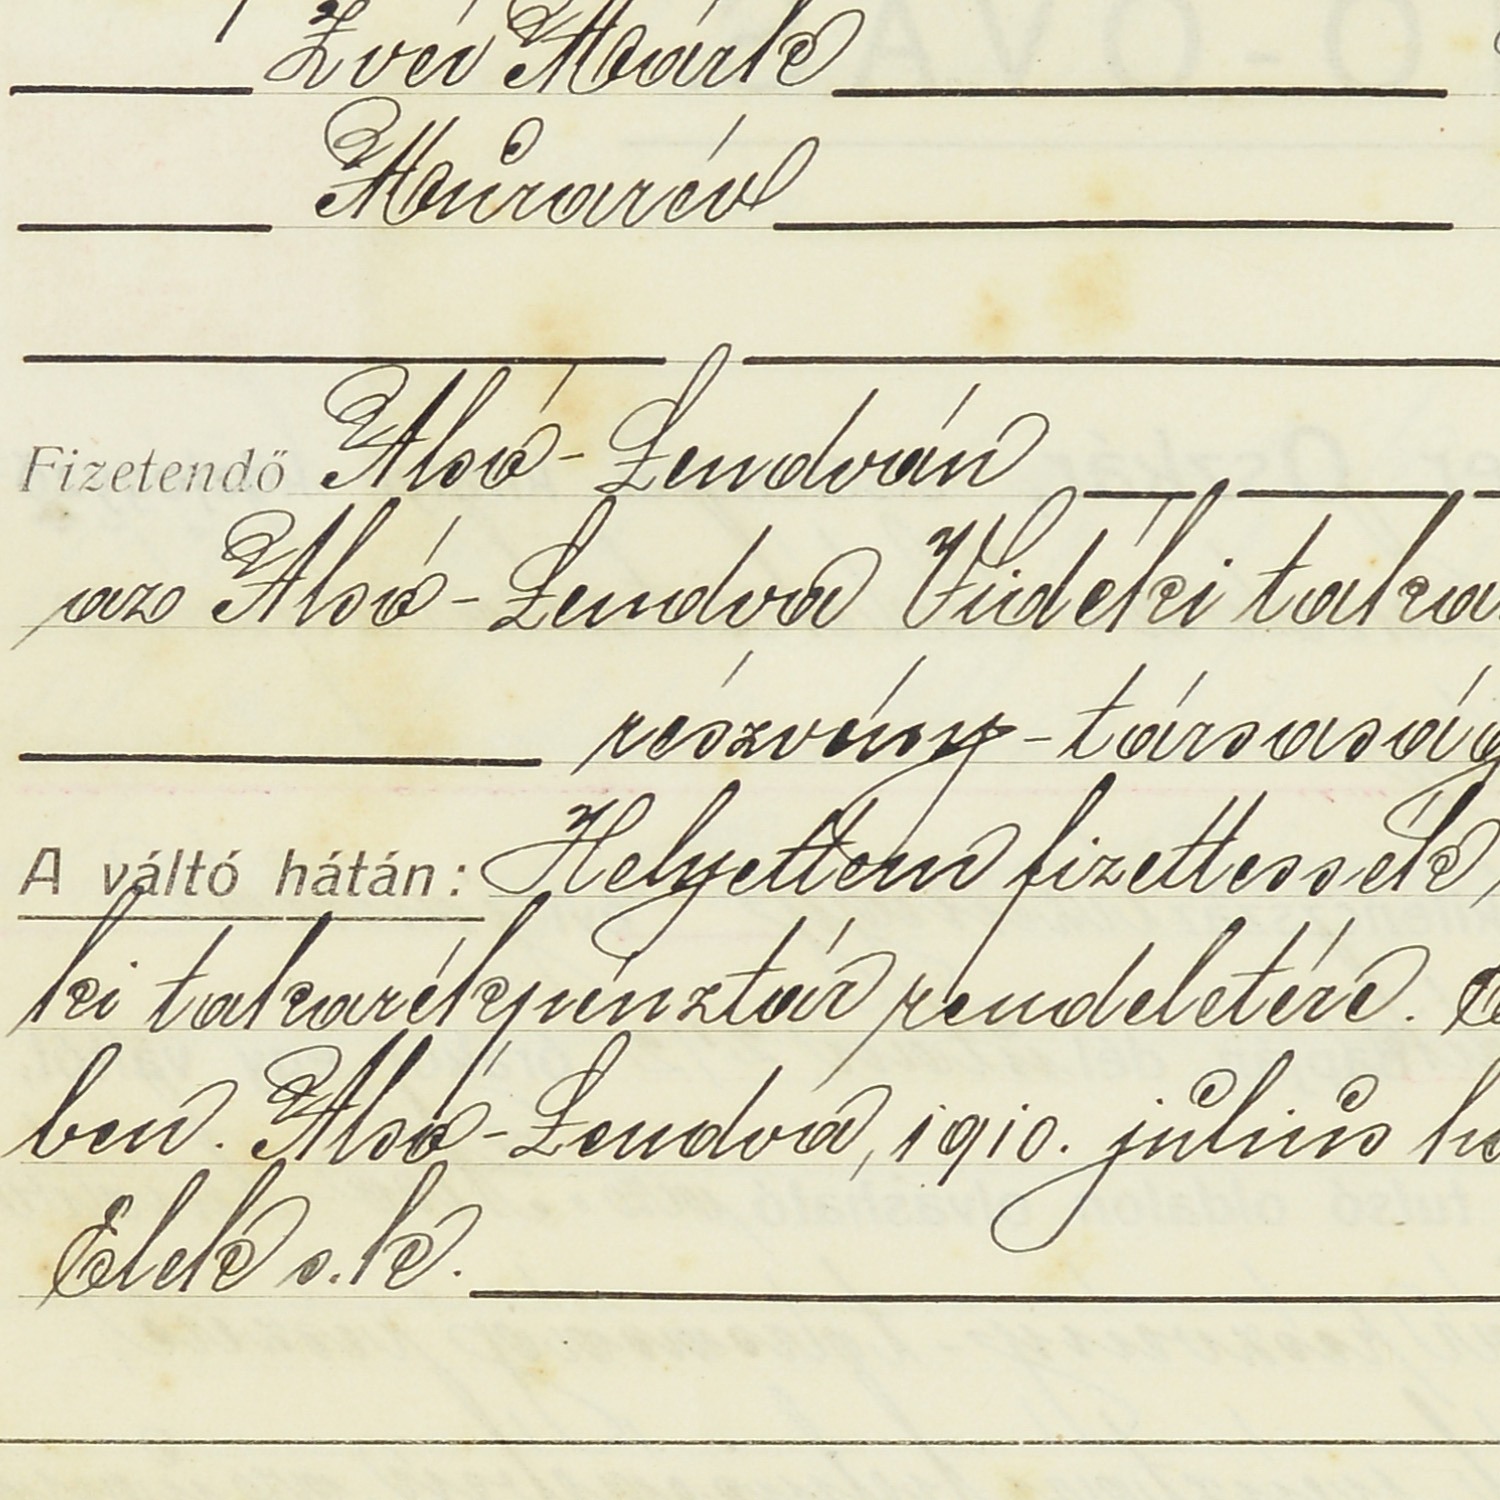 Zvei Márk
Murarév
Fizetendő Alsó-Lendván
az Alsó-Lendva Vidéki taka
részvény-társaság
A váltó hátán: Helyettem fizettessék
ki takarékpénztár rendeletére.
ben. Alsó-Lendva, 1910. július
Elek s.k.